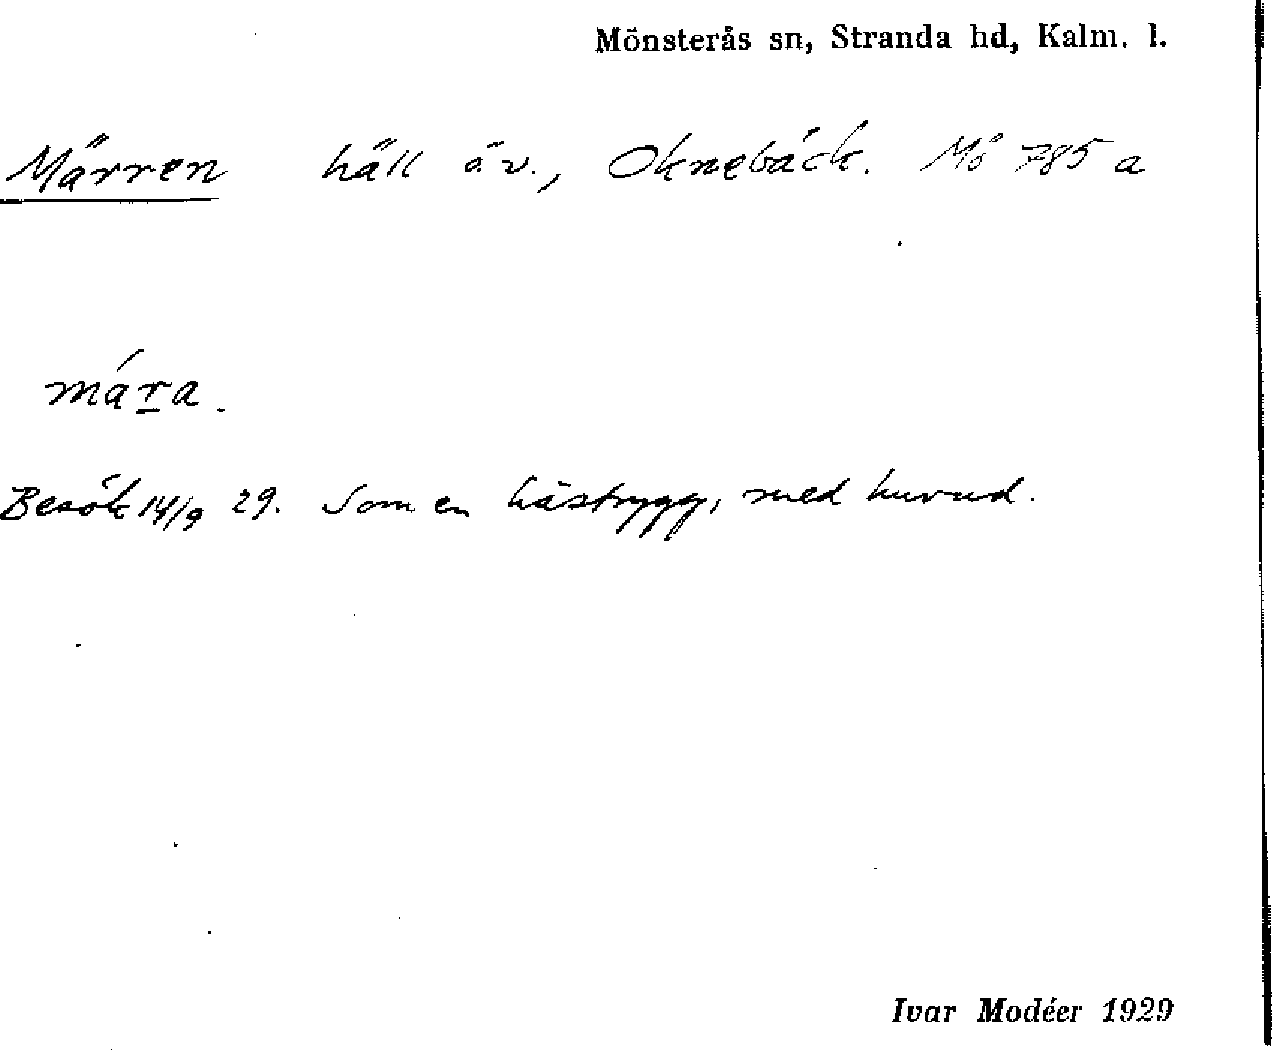 Mönsterås sn, Stranda hd, Kalm. l.
Märren häll ö.v., Oknebäck. Mö 785 a
mára.
Besök 14/9 29. Som en hästrygg, med huvud.
Ivar Modéer 1929